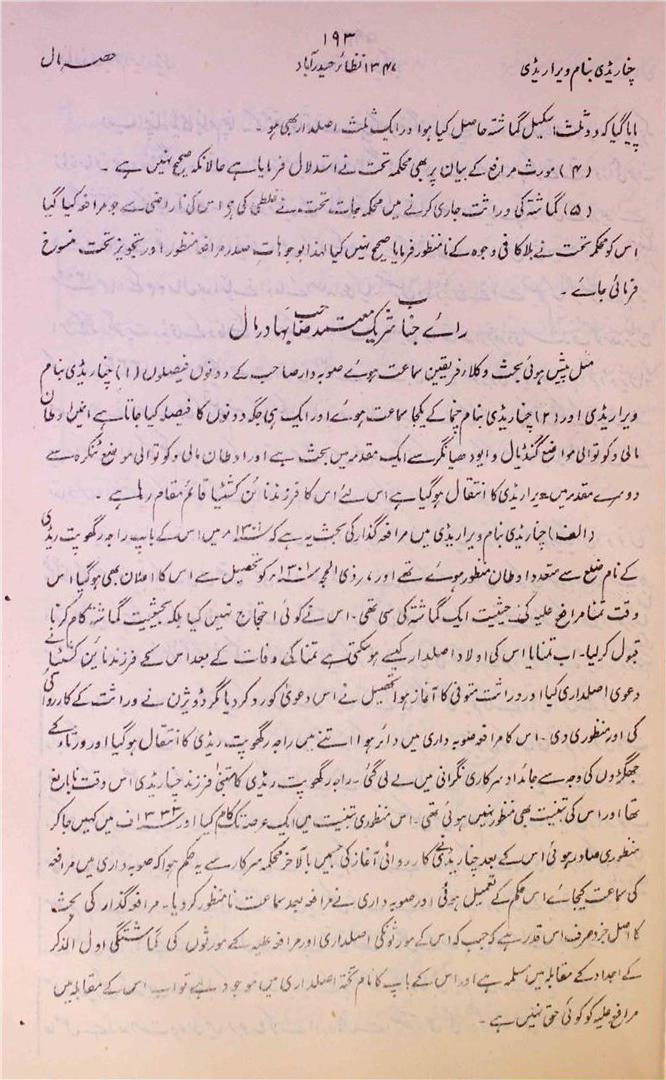 ۱۹۳
چنا ریڈی بنام ویرا ریڈی
۱۳۴۷ نظائر حیدرآباد
حصہ مال
پایا گیا کہ دو ثلث اسکیل گماشتہ حاصل کیا ہو اور ایک ثلث اصلدار بھی ہو ۔
(۴) مورث مرافع کے بیان پر بھی محکمہ تحت نے استدلال فرمایا ہے حالانکہ صحیح نہیں ہے ۔
(۵) گماشتہ کی وراثت جاری کرنے میں محکمہ جات تحت نے غلطی کی ہو اس کی ناراضی سے جو مرافعہ کیا گیا
اس کو محکمہ تحت نے بلا کافی وجوہ کے نامنظور فرمایا صحیح نہیں کیا لہذا بوجوہات صدر مرافعہ منظور اور تجویز تحت منسوخ
فرمائی جائے ۔
رائے جناب شریک معتمد صاحب بہادر مال
مثل پیش ہوئی بحث وکلاء فریقین سماعت ہوئے صوبہ دار صاحب کے دونوں فیصلوں (۱) چنا ریڈی بنام
ویرا ریڈی اور (۲) چنا ریڈی بنام چنما کے یکجا سماعت ہوئے اور ایک ہی جگہ دونوں کا فیصلہ کیا جاتا ہے انمیں اوطان
مالی و کوتوالی مواضع گنڈیال و ایودھیا نگر سے ایک مقدمہ میں بحث ہے اور اوطان مالی و کوتوالی موضع منگرہ سے
دوسرے مقدمہ میں ویرا ریڈی کا انتقال ہو گیا ہے اس لئے اس کا فرزند نائن کشٹیا قائم مقام رہا ہے ۔
(الف) چنا ریڈی بنام ویرا ریڈی میں مرافعہ گذار کی بحث یہ ہے کہ میں اس کے باپ راجہ رگھوپت ریڈی
کے نام ضلع سے متعدد اوطان منظور ہوئے تھے اور ۷؍ ذی الحجہ کو تحصیل سے اس کا اعلان بھی ہو گیا اس
وقت تمنا مرافع علیہ کی حیثیت ایک گماشتہ کی سی تھی ۔ اس نے کوئی احتجاج نہیں کیا بلکہ بحیثیت گماشتہ کام کرنا
قبول کر لیا ۔ اب تمنا یا اس کی اولاد اصلدار کیسے ہو سکتی ہے تمنا کی وفات کے بعد اس کے فرزند نائن کشٹیا نے
دعوی اصلداری کیا اور وراثت متوفی کا آغاز ہوا تحصیل نے اس دعوی کو رد کر دیا مگر ڈویژن نے وراثت کے کارروائی
کی اور منظوری دی ۔ اس کا مرافعہ صوبہ داری میں دائر ہوا اتنے میں راجہ رگھوپت ریڈی کا انتقال ہو گیا اور ورثاء کے
جھگڑوں کی وجہ سے جائداد سرکاری نگرانی میں لے لی گئی ۔ راجہ رگھوپت ریڈی کا متبنی فرزند چنا ریڈی اس وقت نابالغ
تھا اور اس کی تبنیت بھی منظور نہیں ہوئی تھی ۔ اس منظوری تبنیت میں ایک عرصہ تک کام کیا اور ف میں کہیں جا کر
منظوری صادر ہوئی اس کے بعد چنا ریڈی نے کارروائی آغاز کی جسمیں بالآخر محکمہ سرکار سے یہ حکم ہوا کہ صوبہ داری میں مرافعہ
کی سماعت کیجائے اس حکم کے تعمیل ہوئی اور صوبہ داری نے مرافعہ بعد سماعت نامنظور کر دیا ۔ مرافعہ گذار کی بحث
کا اصل جزو صرف اس قدر ہے کہ جب کہ اس کے مورثوں کی اصلداری اور مرافعہ علیہ کے مورثوں کی گماشتگی اول الذکر
کے اجداد کے مقابلہ میں مسلمہ ہے اور اس کے باپ کا نام تختہ اصلداری میں موجود ہے تو اب اس کے مقابلہ میں
مرافع علیہ کو کوئی حق نہیں ہے ۔